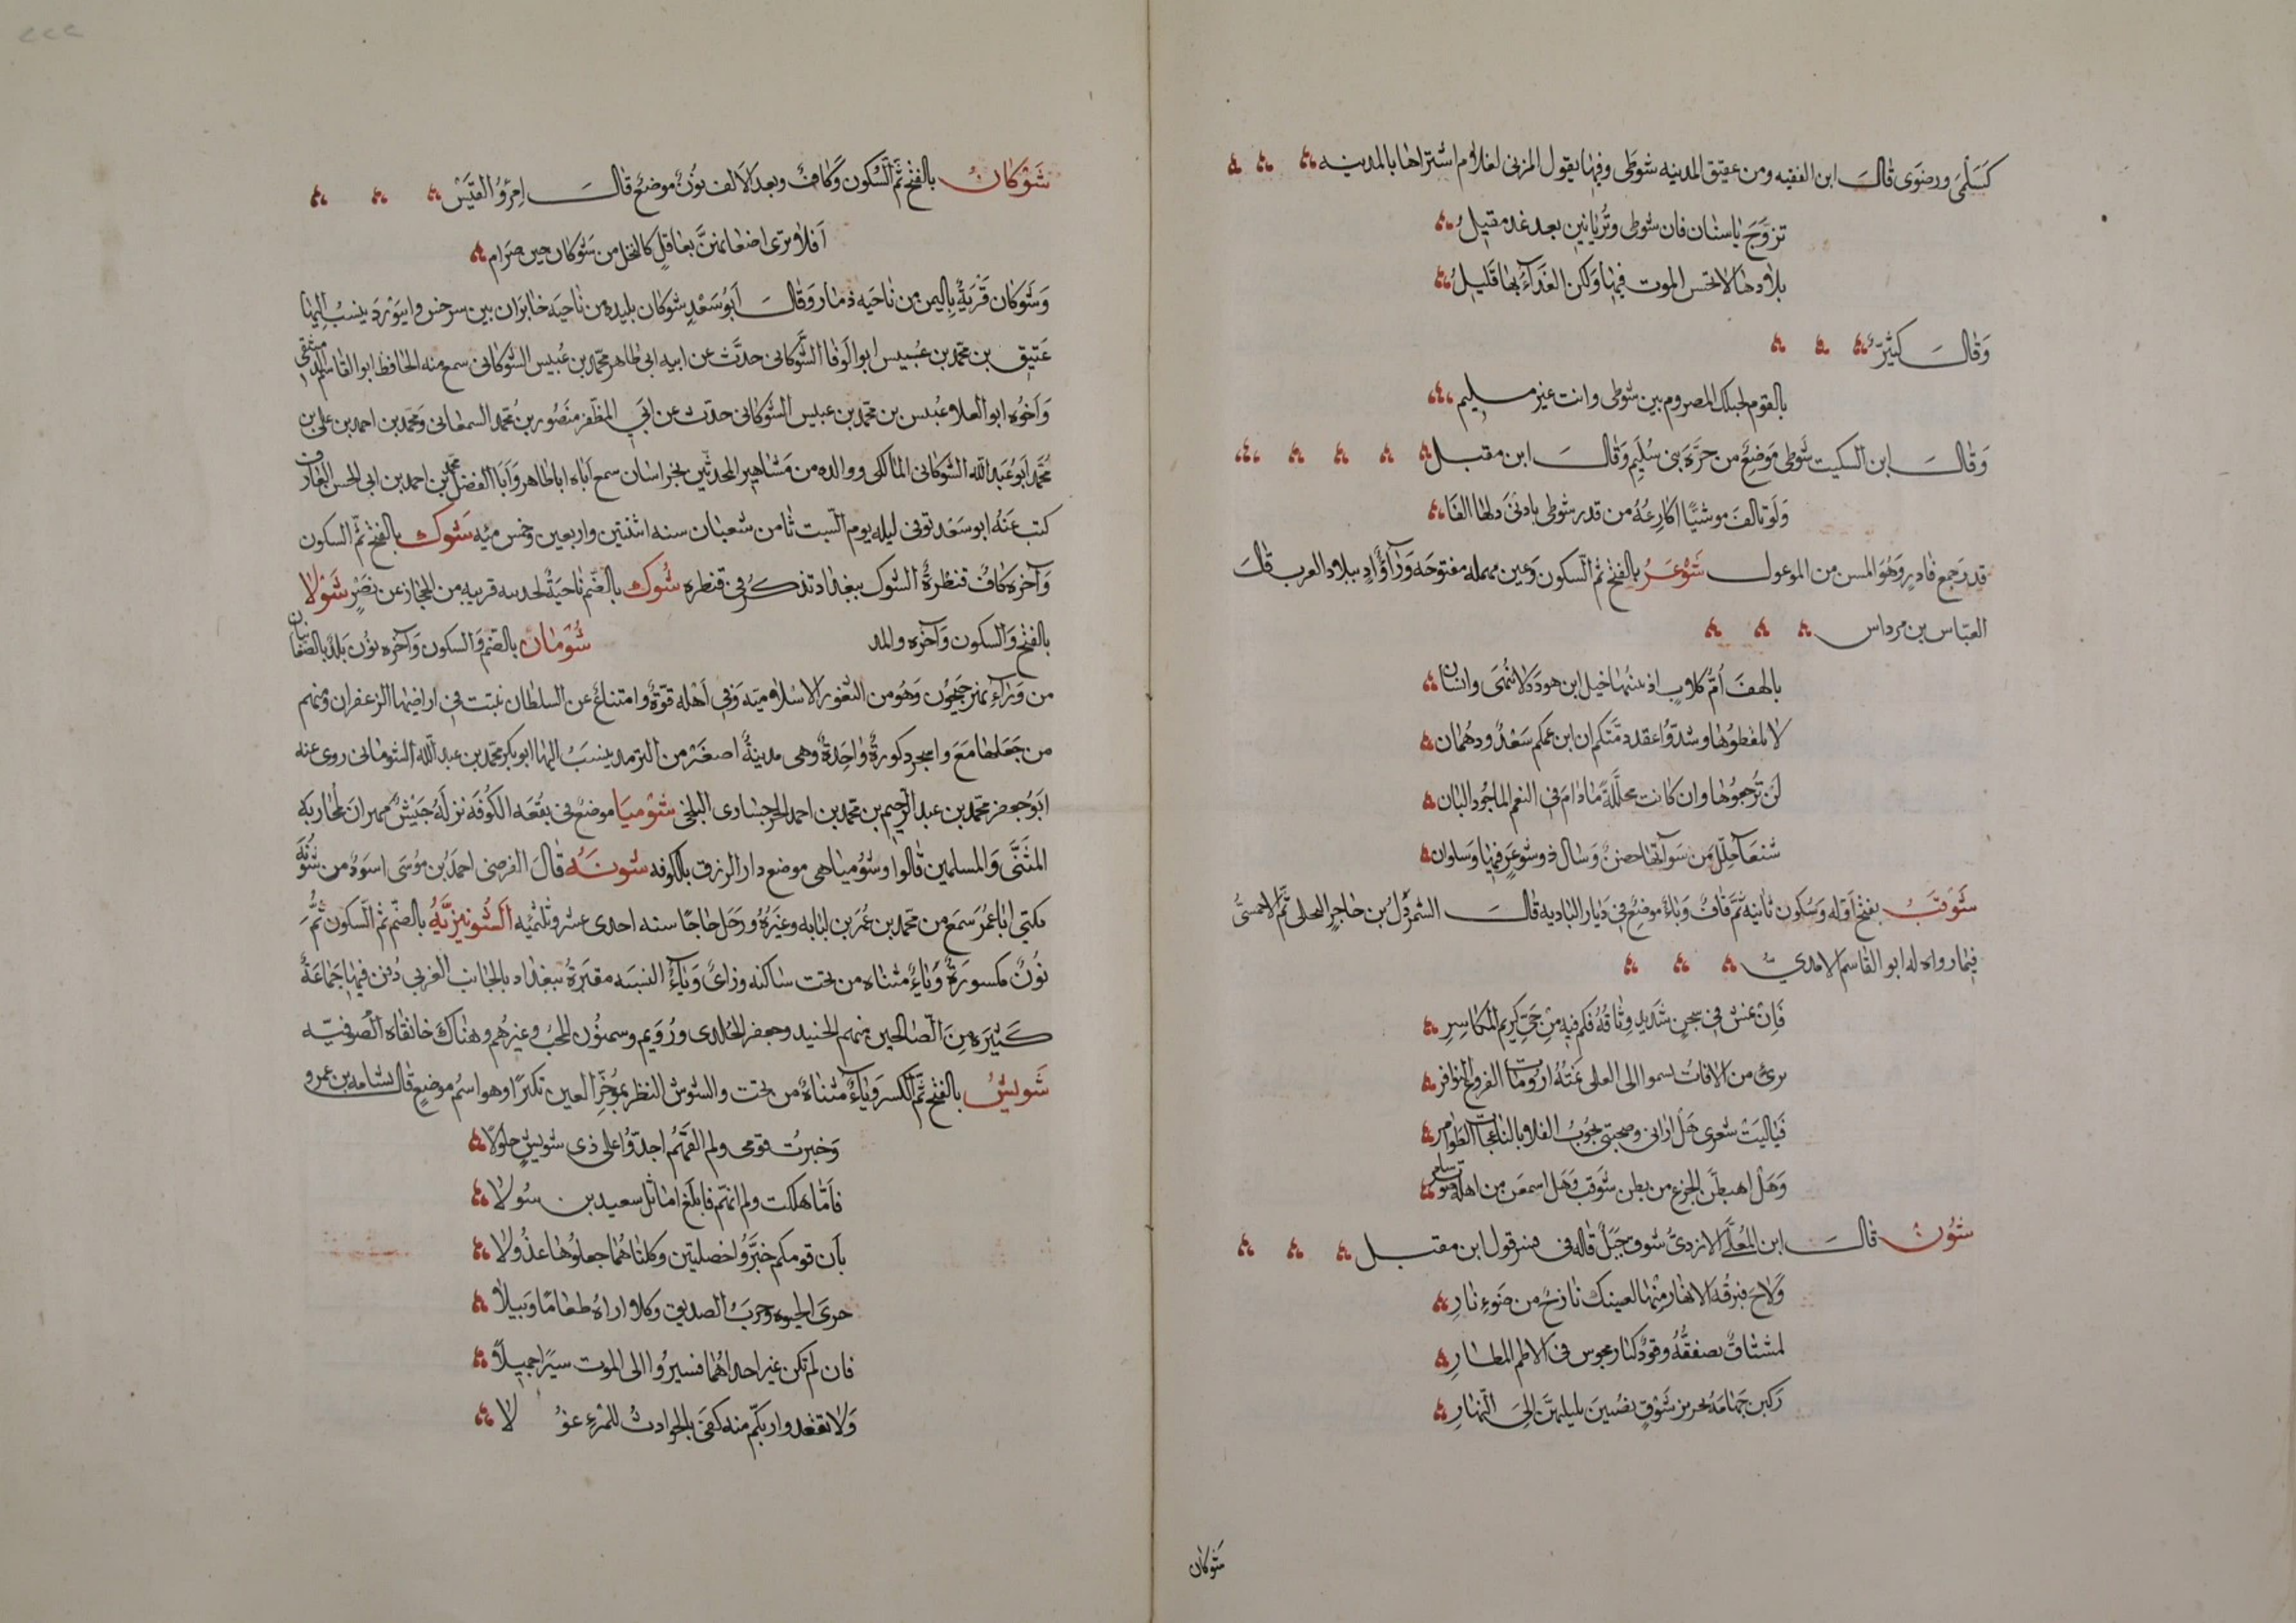 كسلمى ورضوى قال ابن الفقيه ومن عقيق المدينه شوطى وفيها يقول المزنى لغلام اشتراها بالمدينه
تزوّج ياسنان فان شوطى وتُربانين بعد غد مقيل
بلاد هنالا تحس الموت فيها ولكن الغدآء بها قليل
وقال كثير
بالقوم لحبلك المصروم بين شوطى وانت غير مليم
وقال ابن السكيت شوطى موضع من حرّة بنى سليم وقال ابن مقبل
ولو تالف موشيّا اكارعه من قدر شوطى بادنى دلها الفا
قدر جمع فادر وهو المسن من الوعول شوعر بالفتح ثم السكون وعين مهمله مفتوحه ورآءٌ وادٍ ببلاد العرب قال
العبّاس بن مرداس
يالهف اُمّ كلاب اذ خيل ابن هوذة لا تُنهى وانسان
لا تلفظوها وشدّوا عقد ذمّتكم ان ابن عمكم سعد ودهمان
لن تُرجعوها وان كانت مجلّلة مادام فى النعم الماخوذ البان
شنعآ جُلّل من سوآتها حضن وسال ذو شوعر فيها وسلوان
شوقب بفتح اوّله وسكون ثانيه ثم قاف وباء موضع فى ديار الباديه قال الشمردل بن حاجر البجلى ثم الاحمسىّ
فيما رواه له ابو القاسم الامدىّ
فان فى سجن شديد وثاقه فكم فيه من حىّ كريم المكاسر
برئ من الافات يسموا الى العلى ارومات الفروع النوافر
فياليت شعرى هل ارانى وصحبتى نجوب الفلا بالناعجات الضوامر
وهل اهبطن الجزع من بطن شوقب وهل اسمعن من اهله صوت سامر
شوق قال ابن المُعلّى الازدىّ شوق جبل قاله فى قول ابن مقبل
ولاح ببرقه الامهار منها لعينك نازح من ضوء نار
لمشتاق يصفقه وقود كنار مجوس فى الاطم المطار
ركبن جهامة بحزيز شوق يضين بليلهن الى النهار
شوكان
شوكان بالفتح ثم السكون وكاف وبعد الالف نون موضع قال امرؤ القيس
افلا ترى اضعانهنّ بعاقل كالنخل من شوكان حين صرام
وشوكان قرية باليمن من ناحيه ذمار وقال ابو سعد شوكان بليده من ناحية خابران بين سرخس وابيورد ينسب اليها
عتيق بن محمد بن عبيس ابو الوفا الشوكانى حدّث عن ابيه ابى طاهر محمد بن عبيس الشوكانى سمع منه الحافظ ابو القاسم الدمشقى
واخوه ابو العلا عبيس بن محمد بن عبيس الشوكانى حدث عن ابى المظفر منصور بن محمد السمعانى ومحمد بن احمد بن على بن
محمد ابو عبد الله الشوكانى المالكى ووالده من مشاهير المحدثين بخراسان سمع اباه اباطاهر وابا الفضل محمد بن احمد بن ابى الحسن العارف
كتب عنه ابو سعد توفى ليله يوم السبت ثامن شعبان سنه اثنتين واربعين وخمس مئه شوك بالفتح ثم السكون
وآخره كاف قنطرة الشوك ببغداد تذكر فى قنطره شوك بالضم ناحية قريبه من الحجاز عن نصر شولا
بالفتح والسكون وآخره والمد شومان بالضم والسكون وآخره نون بلد بالصغانيان
من ورآء نهر جيحون وهو من الثغور الاسلاميه وفى اهله قوة وامتناع عن السلطان نبتت فى اراضيها الزعفران ومنهم
من جعلها مع واشجرد كورة واحدة وهى مدينة اصغر من الترمذ ينسب اليها ابو بكر محمد بن عبد الله الشومانى روى عنه
ابو جعفر محمد بن عبد الرحيم بن محمد بن احمد البلخى شوميا موضع فى بقعه الكوفه نزله جيش مهران لمحاربه
المثنى والمسلمين قالوا وشوميا هى موضع دار الرزق بالكوفه شونه قال الفرضى احمد بن موسى اسوه من شونة
يكنى اباعمر سمع من محمد بن عمر بن لبابه وغيره ورحل حاجا سنه احدى عشر وثلثمئه الشونيزيّة بالضم ثم السكون ثم
نون مكسورة وياء مثناه من تحت ساكنه وزاى وياء النسبه مقبرة ببغداد بالجانب الغربى دفن فيها جماعة
كثيره من الصالحين منهم الجنيد وجعفر الخلدى ورويم وسمنون المحب وغيرهم وهناك خانقاه الصوفيه
شويس بالفتح ثم الكسر وياء مثناة من تحت والشوس النظر بمؤخر العين تكبرا وهو اسم موضع قال بشامه بن عمرو
وخبرت قومى ولم القهم اجدّوا على ذى شويس حلولا
فامّا هلكت ولم اتهم فابلغ اماثل سعيد بن سولا
بان قومكم خيّروا خصلتين وكلتاهما جعلوها عدولا
خزى الحيوه وحرب الصديق وكلا اراه طعاما وبيلا
فان لم تكن غير احداهما فسيروا الى الموت سيرا جميلا
ولا تقعدوا وبكم منه كفى بالحوادث للمرء غو لا